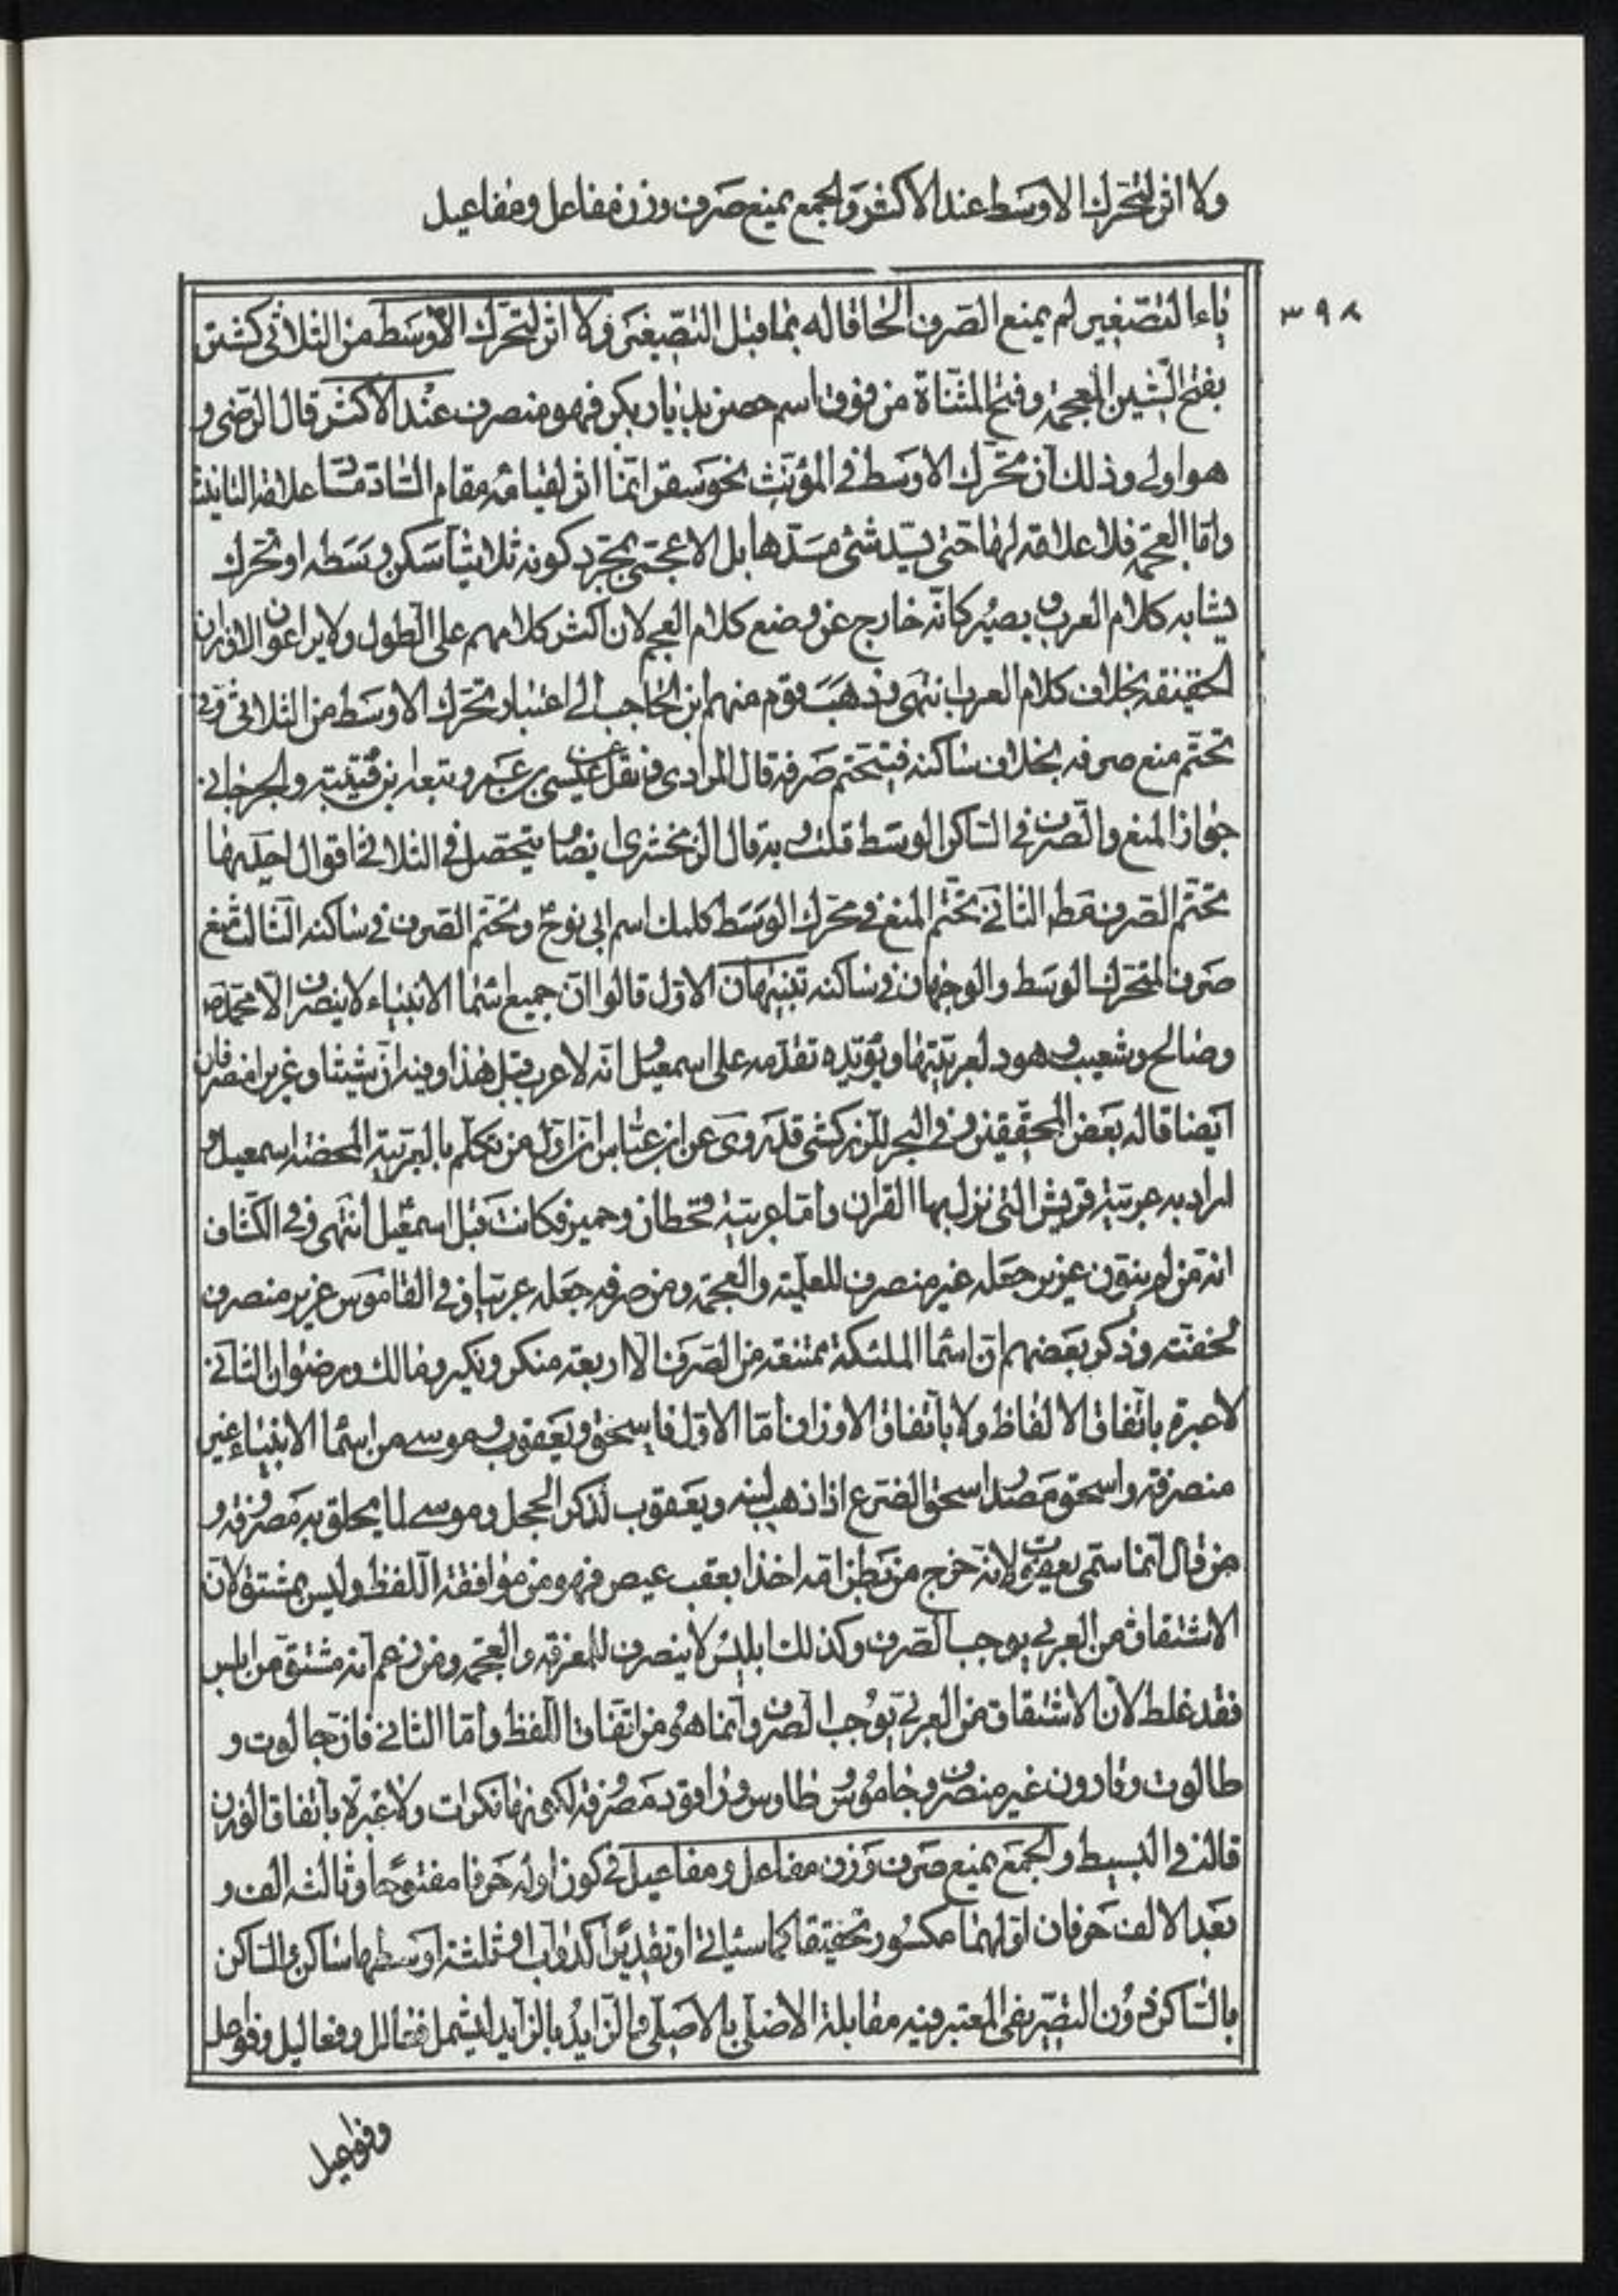 ولا اثر لتحرك الاوسط عند الاكثر والجمع يمنع صرف وزن مفاعل ومفاعيل
٣٩٨
ياء التصغير لم يمنع الصرف الحاقا له بما قبل التصغير ولا اثر لتحرك الاوسط من الثلاثي كشتر
بفتح الشين المعجمة وفتح المثناة من فوق اسم حصن بديار بكر فهو منصرف عند الاكثر قال الرضى و
هو اولى وذلك ان تحرك الاوسط في المؤنث نحو سقر انما اثر لقيامه مقام الساد مسا علامة التانيث
واما العجمة فلا علامة لها حتى يسد شئ مسدها بل الاعجمى بمجرد كونه ثلاثيا سكن وسطه او تحرك
يشابه كلام العرب ويصير كانه خارج عن وضع كلام العجم لان اكثر كلامهم على الطول ولا يراعون الاوزان
الخفيفة بخلاف كلام العرب انتهى وذهب قوم منهم ابن الحاجب الى اعتبار تحرك الاوسط من الثلاثي في
تحتم منع صرفه بخلاف ساكنه فيتحتم صرفه قال المرادى ونقل عن عيسى بن عمر وتبعه ابن قتيبة والجرجاني
جواز المنع والصرف في الساكن الوسط قلت وبه قال الزمخشرى ايضا فيتحصل في الثلاثي اقوال احدها
تحتم الصرف مطلقا الثاني تحتم المنع في محرك الوسط كلمك اسم ابي نوح وتحتم الصرف في ساكنه الثالث منع
صرف المتحرك الوسط والوجهان في ساكنه تنبيهان الاول قالوا ان جميع اسما الانبياء لا ينصرف الا محمد ص
وصالح وشعيب وهود لعربيتها ويؤيده تقدمه على اسمعيل وانه لا عرب قبل هذا وفيه ان شيثا وعزيرا منصرفان
ايضا قاله بعض المحققين وفي البحر للزركشي قد روى عن ابن عباس ان اول من تكلم بالعربية المحضة اسمعيل و
اراد به عربية قريش التى نزل بها القران واما عربية قحطان وحمير فكانت قبل اسمعيل انتهى وفي الكشاف
انه من لم ينون عزير جعله غير منصرف للعلمية والعجمة ومن صرفه جعله عربيا وفي القاموس عزير منصرف
لخفته وذكر بعضهم ان اسما الملئكة ممتنعة من الصرف الا اربعة منكر ونكير ومالك ورضوان الثاني
لا عبرة باتفاق الالفاظ ولا باتفاق الاوزان فاما الاول فاسحق ويعقوب وموسى من اسما الانبياء غير
منصرفة واسحق مصدر اسحق الضرع اذا ذهب لبنه ويعقوب لذكر الحجل وموسى لما يحلق به مصروفة و
من قال انما سمى يعقوب لانه خرج من بطن امه اخذا بعقب عيص فهو من موافقة اللفظ وليس بمشتق لان
الاشتقاق من العربي يوجب الصرف وكذلك ابليس لا ينصرف للمعرفة والعجمة ومن زعم انه مشتق من ابلس
فقد غلط لان الاشتقاق من العربي يوجب الصرف وانما هى من اتفاق اللفظ واما الثاني فان جالوت و
طالوت وقارون غير منصرف وجاموس وطاوس وراقود مصروفة لكونها نكرات ولا عبرة باتفاق الوزن
قاله في البسيط والجمع يمنع صرف وزن مفاعل ومفاعيل في كون اوله حرفا مفتوحا وثالثه الف و
بعد الالف حرفان اولهما مكسور تحقيقا كما سياتي او تقديرا كدواب او ثلثة اوسطها ساكن والساكن
بالساكن دون التصريفى المعتبر فيه مقابلة الاصلى بالاصلى والزايد بالزايد ليشمل فعالل وفعاليل وفواعل
وفواعيل